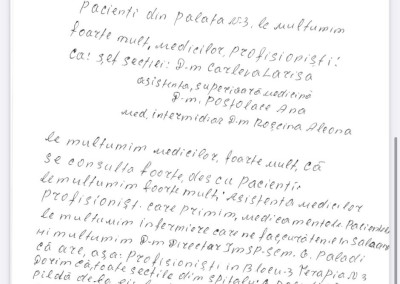 Pacienti din palata N3, le multumim
foarte mult, medicilor, profisioniști:
Ca: șef secției: D-m Carleva Larisa
asistenta, superioară medicină
D-m. Postolace Ana
med. intermidiar D-m Roșcina Aleona
le multumim medicilor, foarte mult, că
se consulta foarte, des cu pacienti
le multumim foorte mult: Asistenta medicilor
profisionist. care primim, medicamentele
le multumim infermiere care ne fac
mi multumim D-m Director IMSP-Sem. G. Paladi
că are, așa: Profisioniști in Blocu-3 Terapia N3
Dorim că, toate secțiile dim spitalu
pildă de la